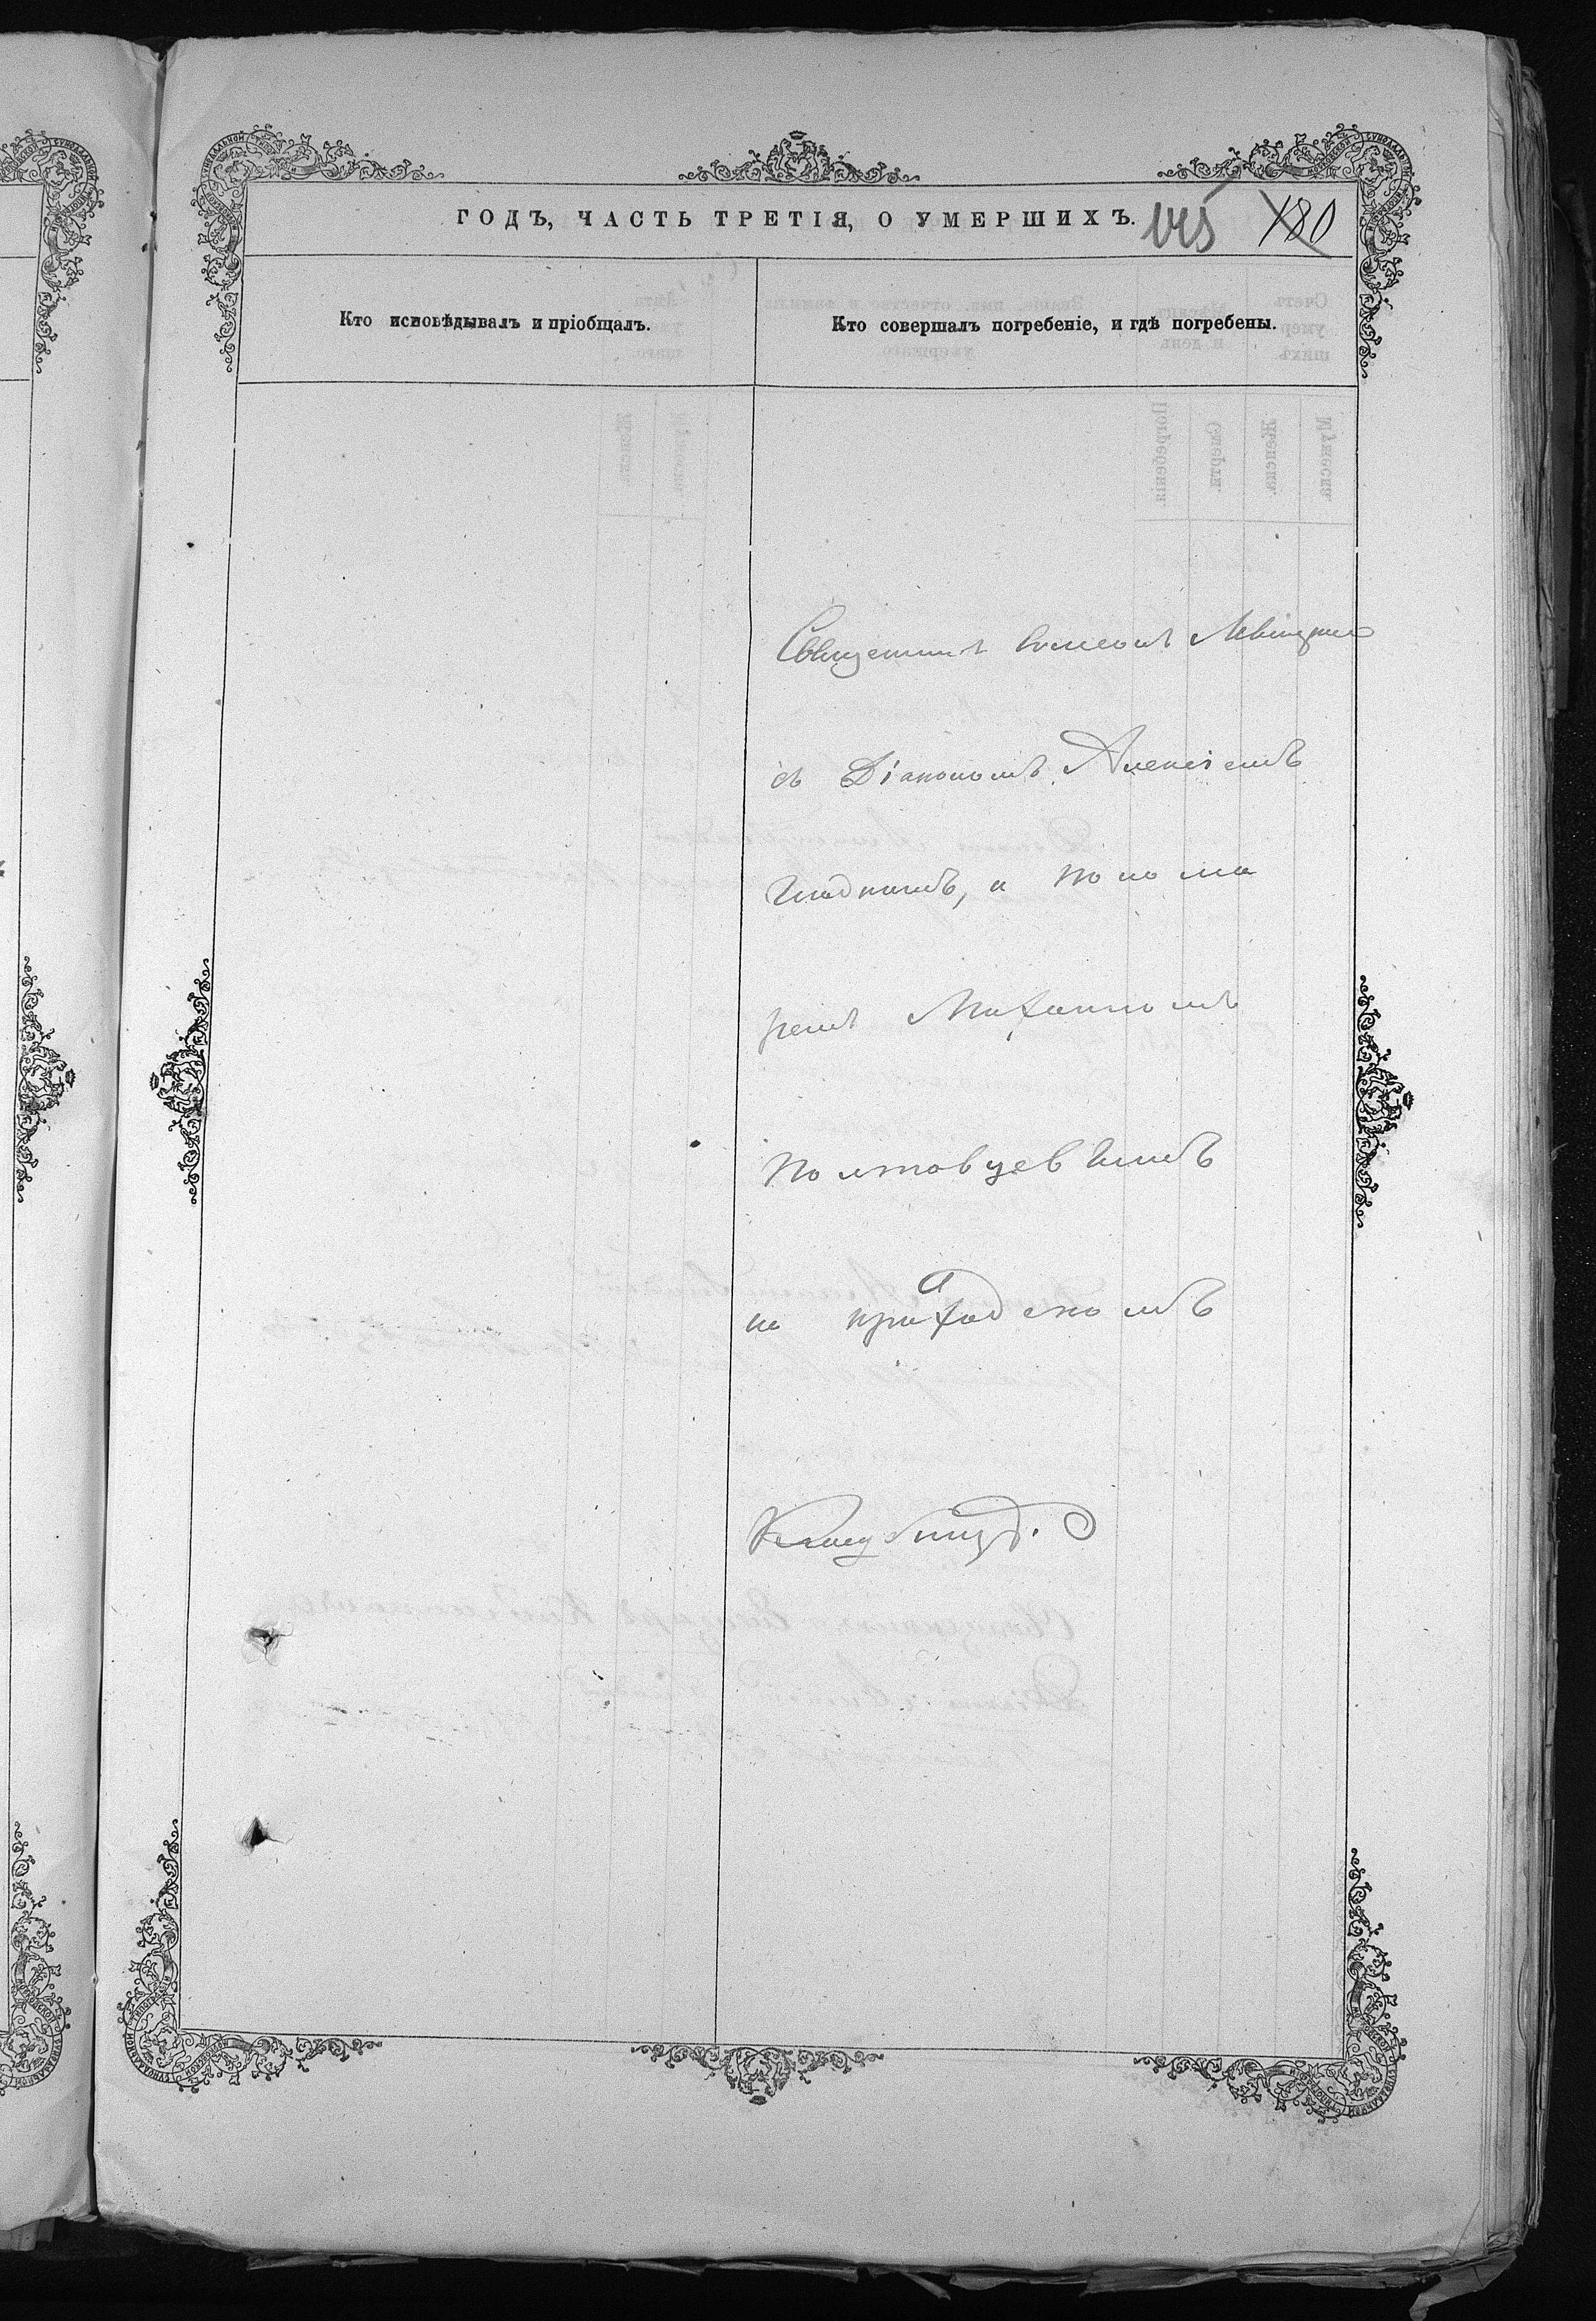 ГОДЪ, ЧАСТЬ ТРЕТІЯ, О УМЕРШИХЪ. 145 180
Кто исповѣдывалъ и пріобщалъ.
Кто совершалъ погребеніе, и гдѣ погребены.
Священникъ Симеонъ
съ Діакономъ Алексіемъ
Гладкимъ, и понома
ремъ Михаиломъ
Полтовцевымъ
на приходскомъ
Кладбищѣ.